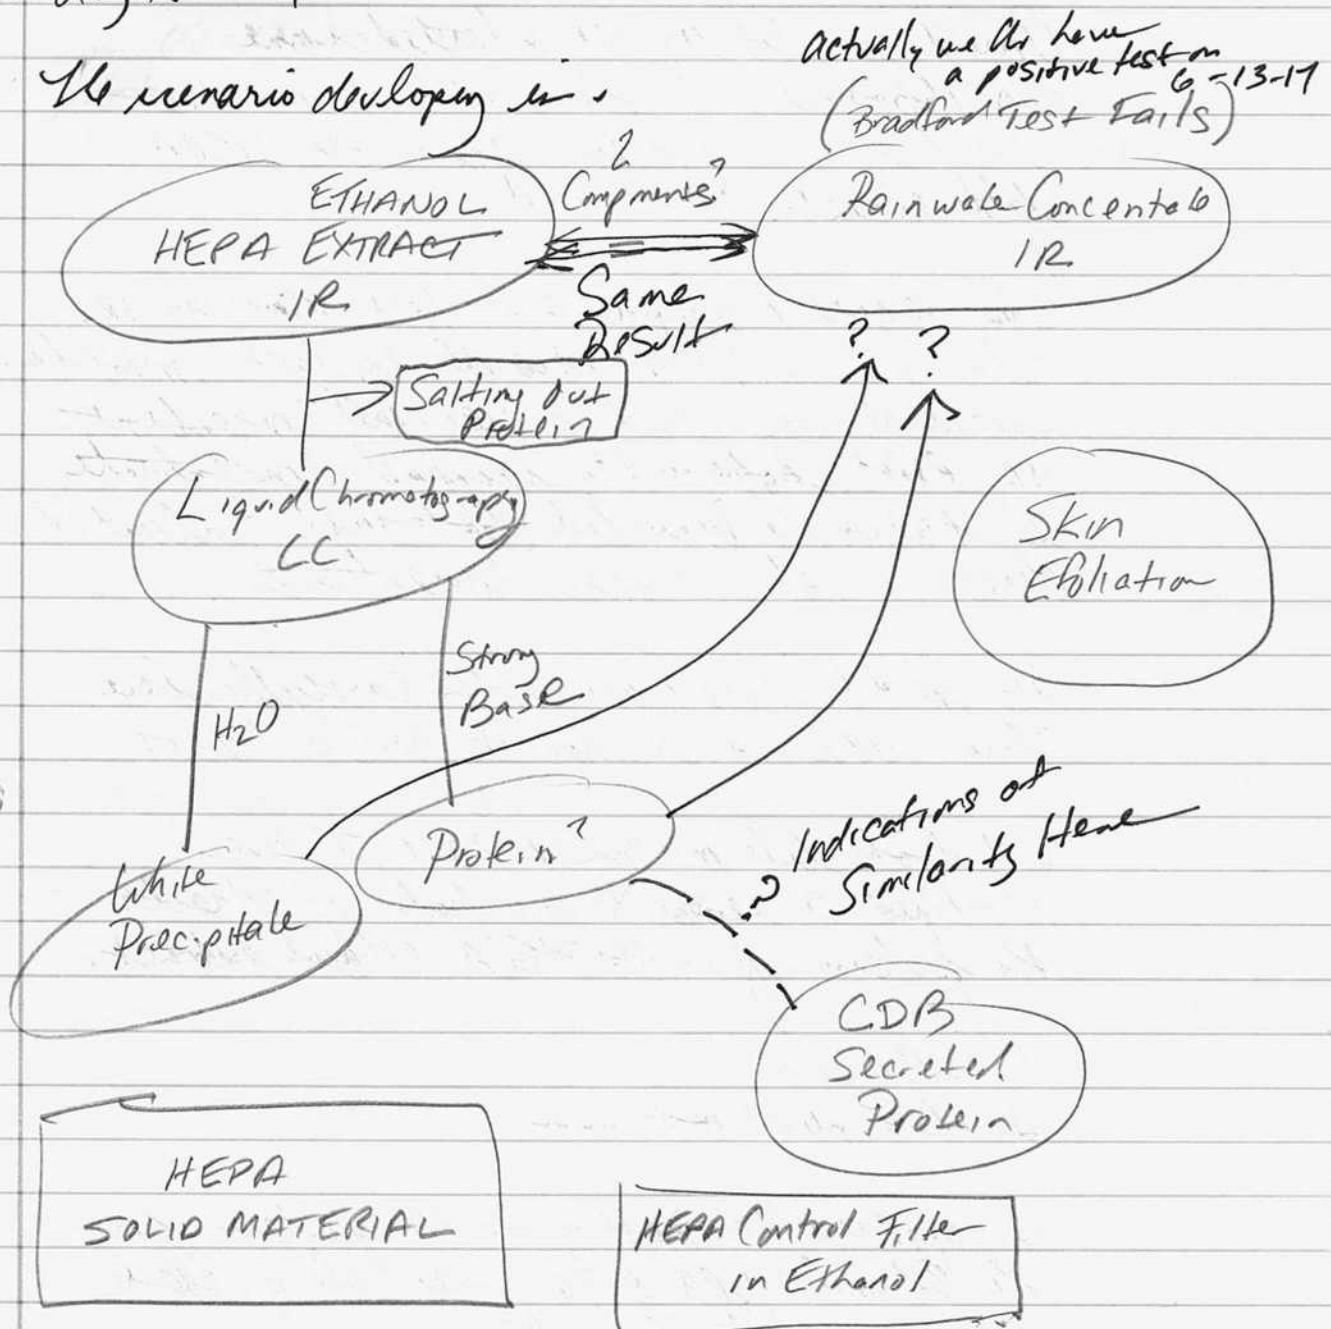 The scenario developing is.
actually we do have
a positive test on
6-13-17
(Bradford Test Fails)
ETHANOL
HEPA EXTRACT
IR
2
Components?
Same
Result
Rainwate Concentrate
IR
? ?
Salting Out
Protein
Liquid Chromotography
LC
Skin
Efoliation
H2O
Strong
Base
White
Precipitate
Protein?
? Indications of
Similarity Here
CDB
Secreted
Protein
HEPA
SOLID MATERIAL
HEPA Control Filter
in Ethanol